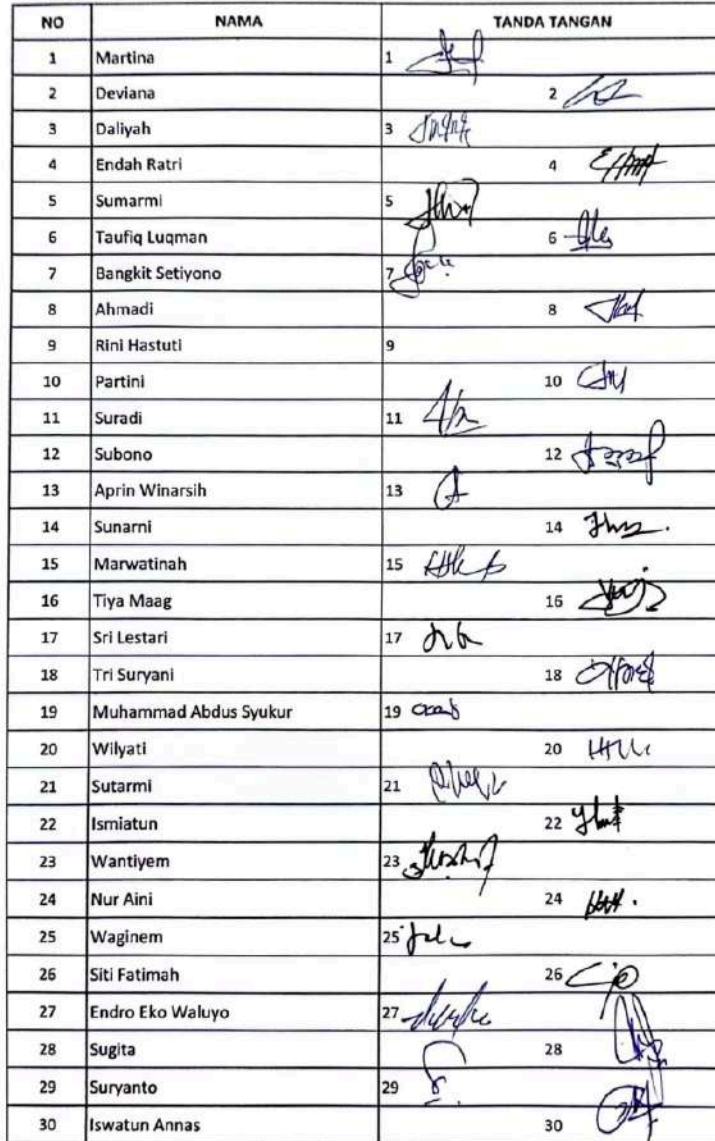 NO NAMA TANDA TANGAN
1 Martina 1
2 Deviana 2
3 Daliyah 3
4 Endah Ratri 4
5 Sumarmi 5
6 Taufiq Luqman 6
7 Bangkit Setiyono 7
8 Ahmadi 8
9 Rini Hastuti 9
10 Partini 10
11 Suradi 11
12 Subono 12
13 Aprin Winarsih 13
14 Sunarni 14
15 Marwatinah 15
16 Tiya Maag 16
17 Sri Lestari 17
18 Tri Suryani 18
19 Muhammad Abdus Syukur 19
20 Wilyati 20
21 Sutarmi 21
22 Ismiatun 22
23 Wantiyem 23
24 Nur Aini 24
25 Waginem 25
26 Siti Fatimah 26
27 Endro Eko Waluyo 27
28 Sugita 28
29 Suryanto 29
30 Iswatun Annas 30